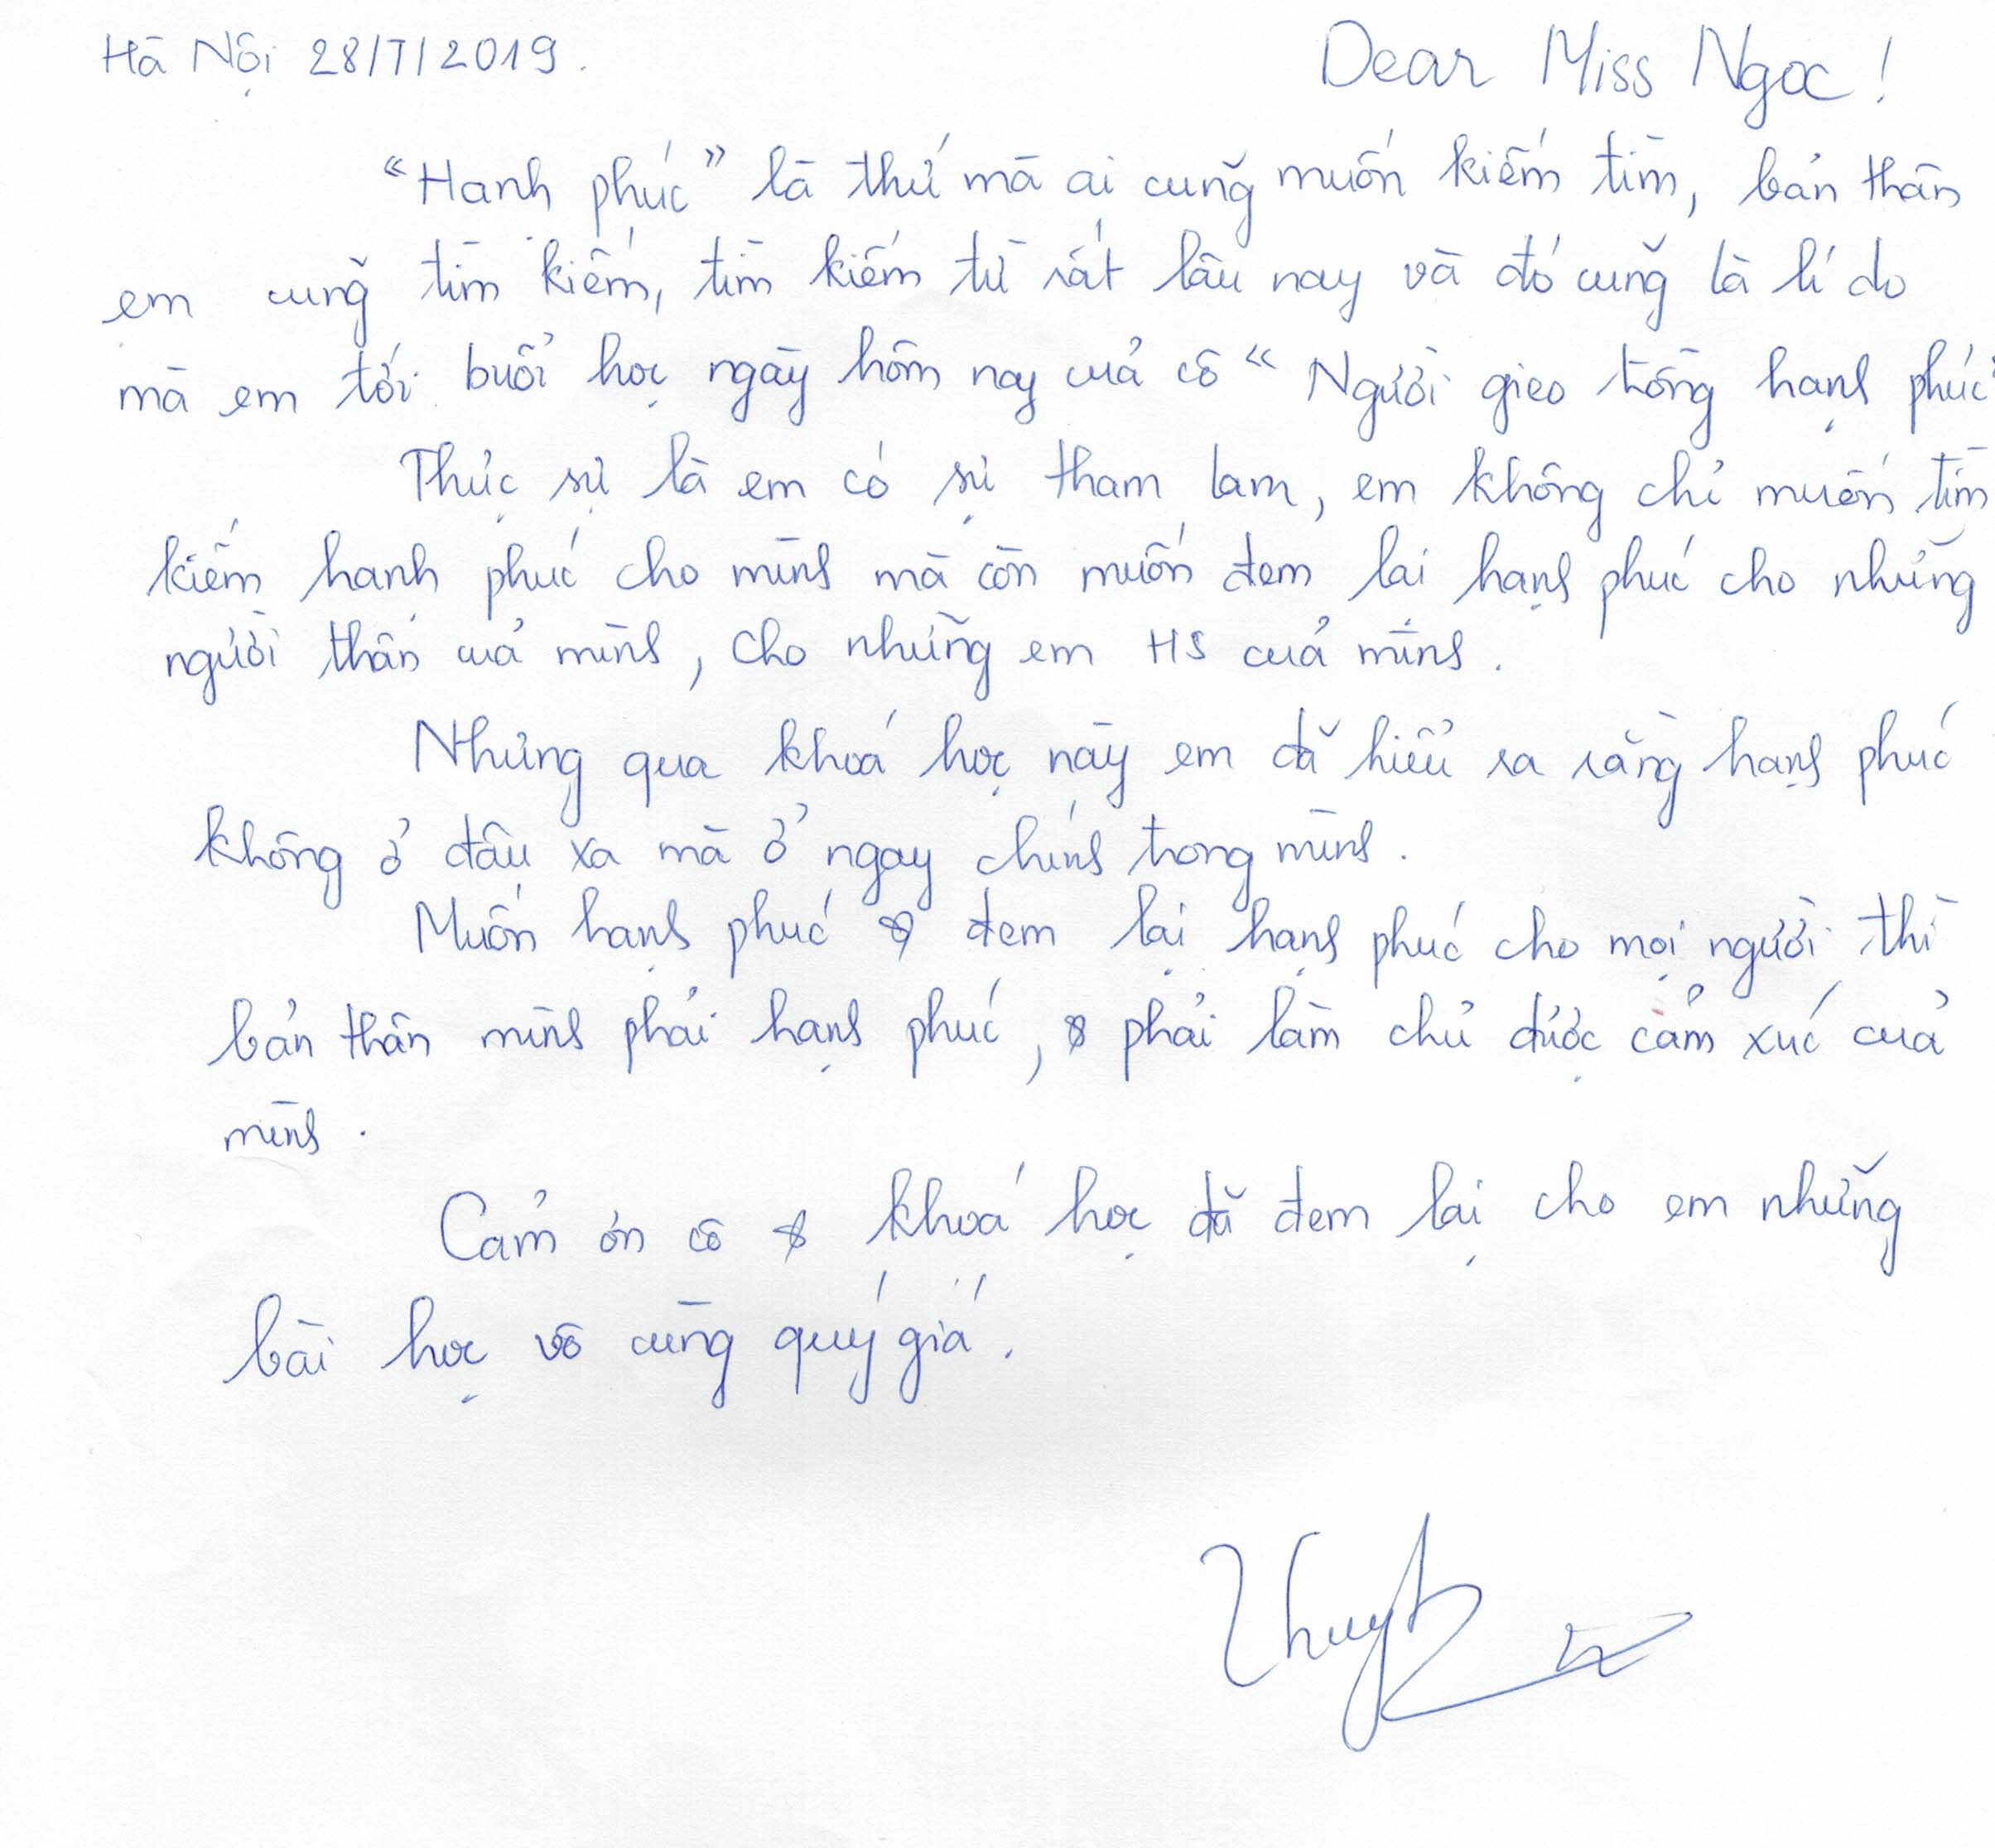 Hà Nội 28/7/2019.
Dear Miss Ngọc!
"Hạnh phúc" là thứ mà ai cũng muốn kiếm tìm, bản thân
em cũng tìm kiếm, tìm kiếm từ rất lâu nay và đó cũng là lí do
mà em tới buổi học ngày hôm nay của cô "Người gieo trồng hạnh phúc"
Thực sự là em có sự tham lam, em không chỉ muốn tìm
kiếm hạnh phúc cho mình mà còn muốn đem lại hạnh phúc cho những
người thân của mình, cho những em HS của mình.
Nhưng qua khoá học này em đã hiểu ra rằng hạnh phúc
không ở đâu xa mà ở ngay chính trong mình.
Muốn hạnh phúc & đem lại hạnh phúc cho mọi người thì
bản thân mình phải hạnh phúc, & phải làm chủ được cảm xúc của
mình.
Cảm ơn cô & khoá học đã đem lại cho em những
bài học vô cùng quý giá.